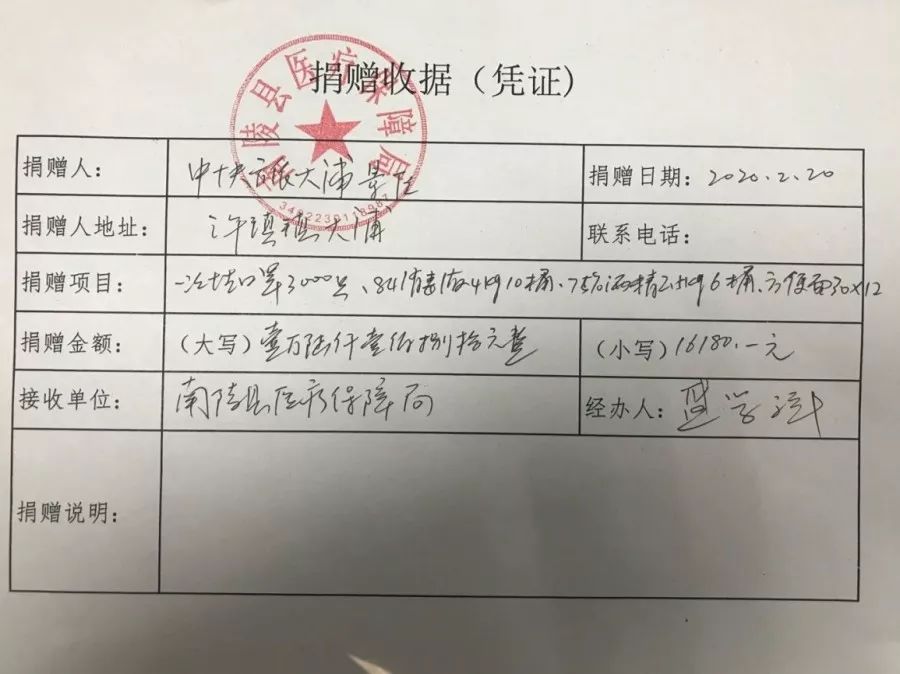 捐赠收据（凭证)
南陵县医疗保障局
捐赠人： 大浦景区 捐赠日期：2020.2.20
捐赠人地址： 许镇镇大浦 联系电话：
捐赠项目： 一次性口罩3000只、84消毒液4kg10桶、75%酒精2.5kg6桶、方便面30×12
捐赠金额： （大写）壹万陆仟壹佰捌拾元整 （小写）16180.一元
接收单位： 南陵县医疗保障局 经办人：
捐赠说明：